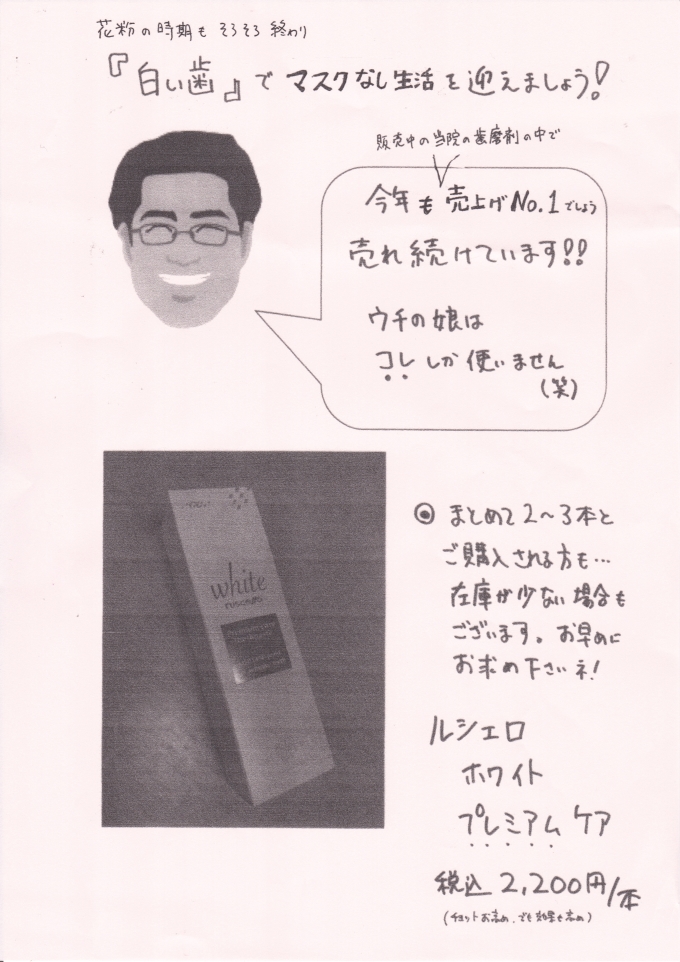 花粉の時期も そろそろ 終わり
『白い歯』で マスクなし生活を迎えましょう!
販売中の当院の歯磨剤の中で
今年も売上げNo.1でしょう
売れ続けています!!
ウチの娘は
コレしか使いません
(笑)
white
◉ まとめて2〜3本と
ご購入される方も…
在庫が少ない場合も
ございます。お早めに
お求め下さいネ!
ルシェロ
ホワイト
プレミアムケア
税込 2,200円/本
(チョットお高め、でも効果も高め)